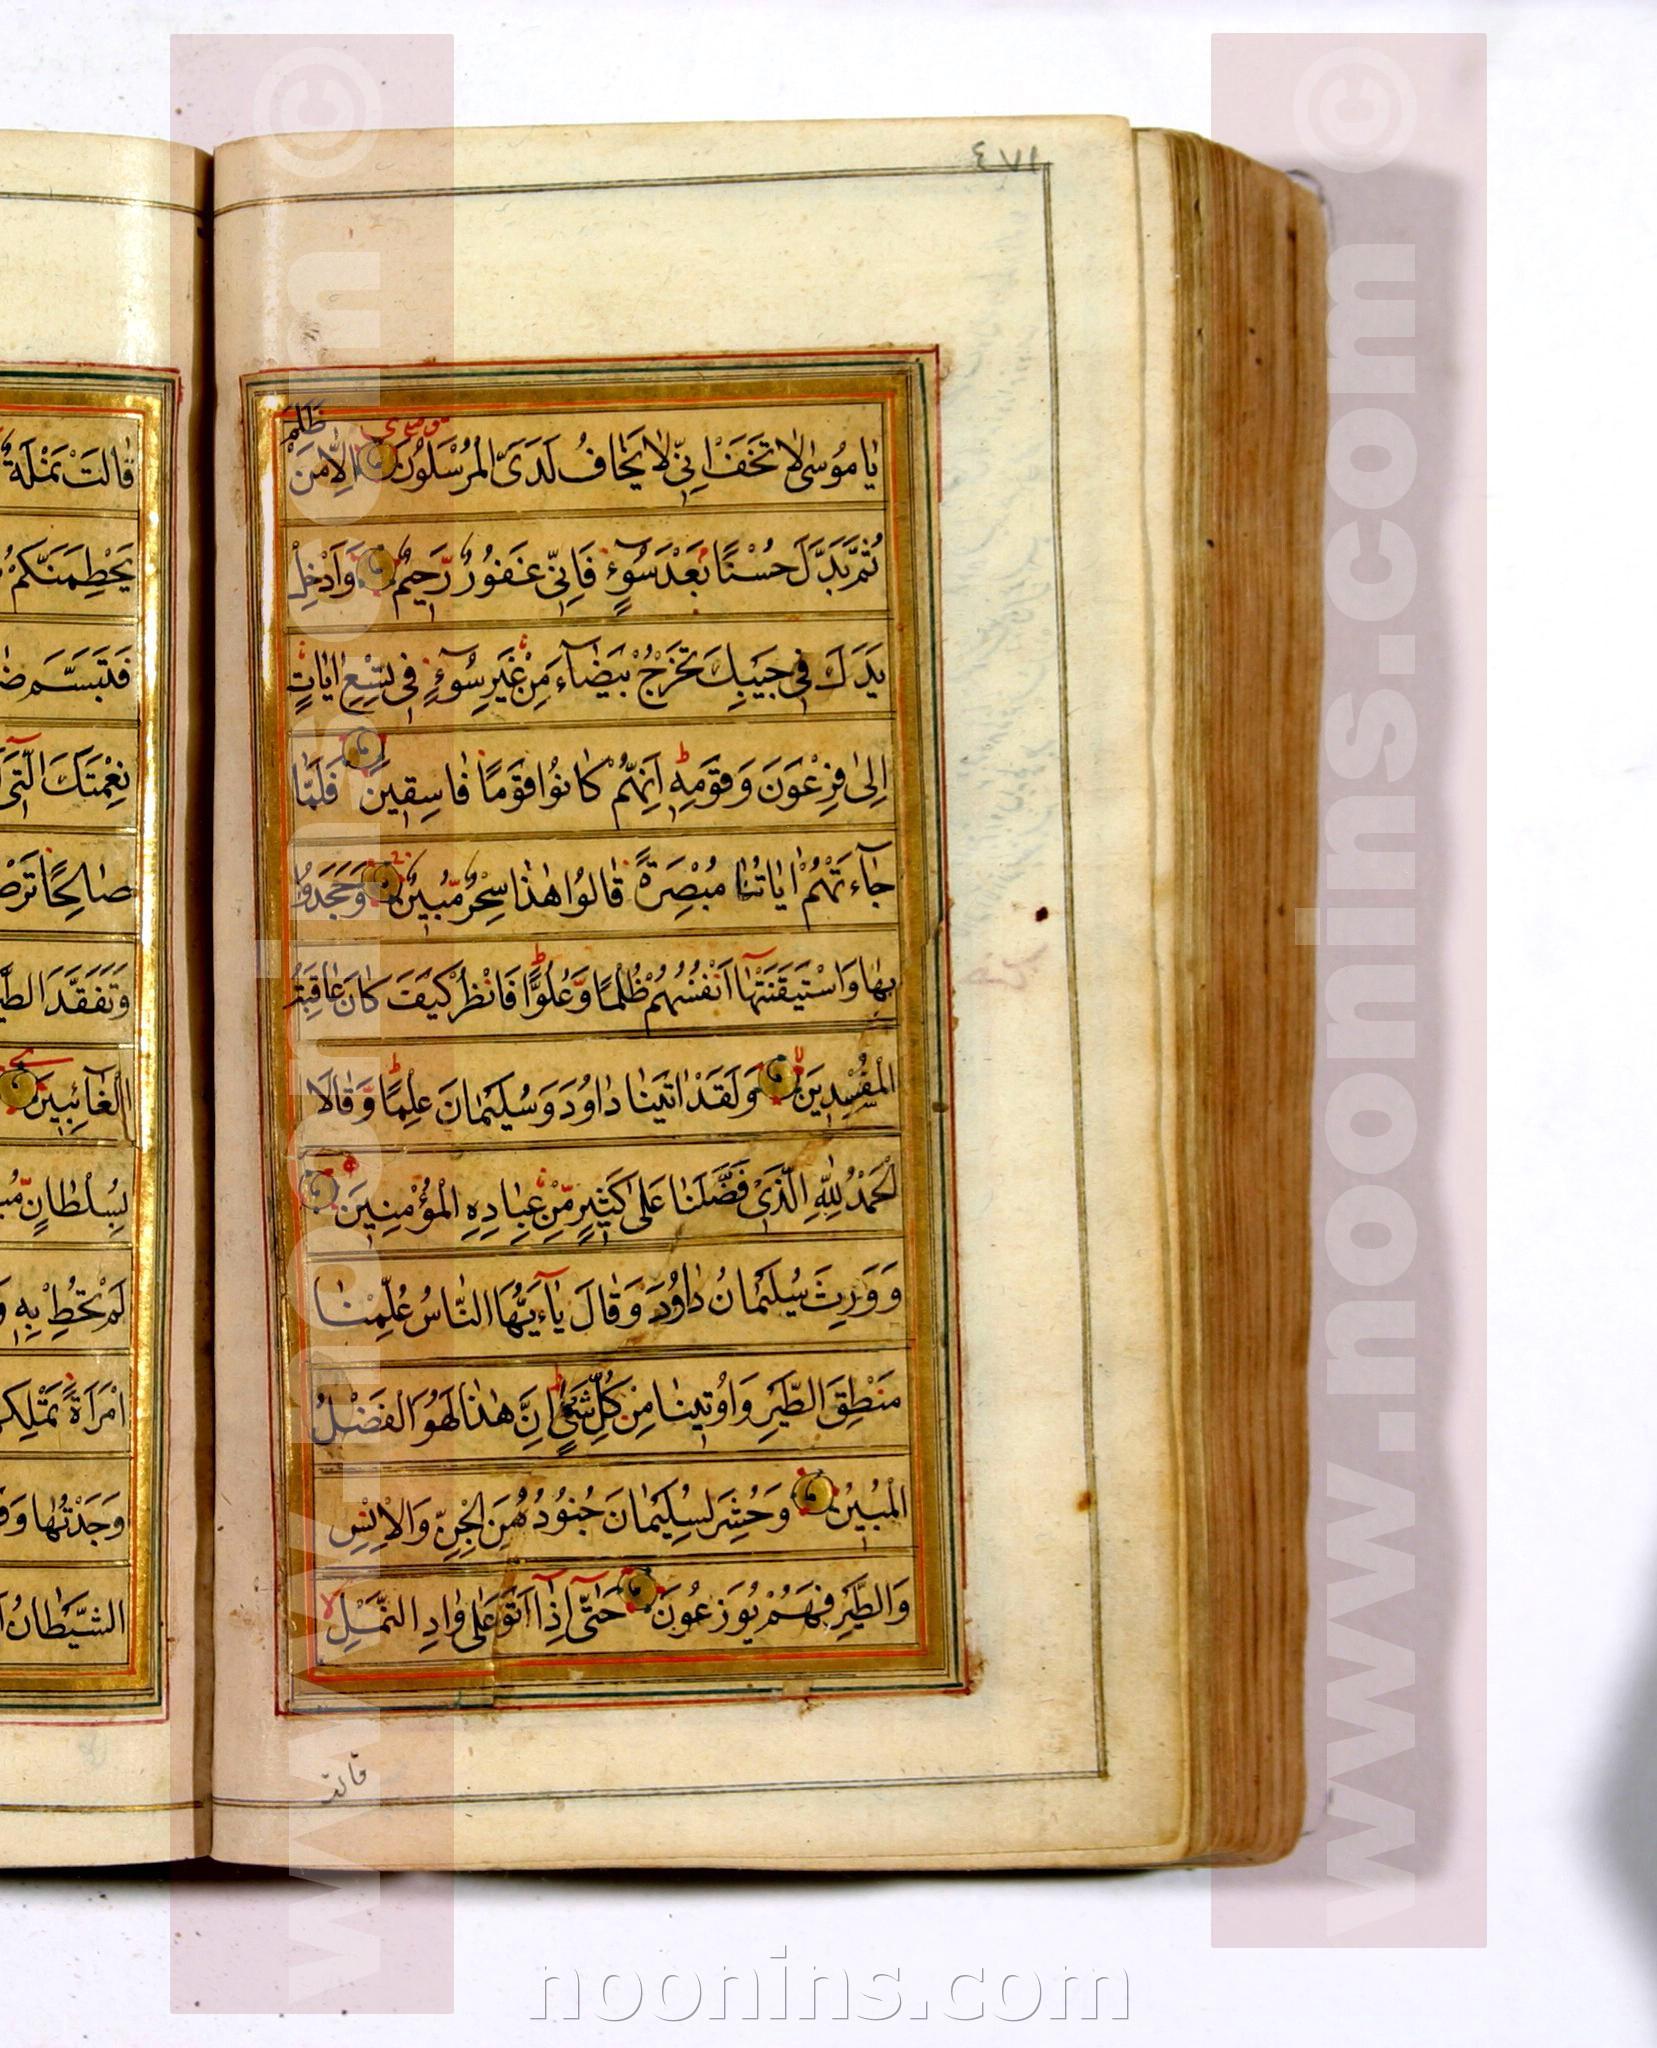 ٤٧١
يٰا مُوسٰى لٰا تَخَفْ اِنّٖى لٰا يَخٰافُ لَدَىَّ الْمُرْسَلُونَ اِلّٰا مَنْ ظَلَمَ
ثُمَّ بَدَّلَ حُسْنًا بَعْدَ سُوٓءٍ فَاِنّٖى غَفُورٌ رَحٖيمٌ وَاَدْخِلْ
يَدَكَ فٖى جَيْبِكَ تَخْرُجْ بَيْضٰٓاءَ مِنْ غَيْرِ سُوٓءٍ فٖى تِسْعِ اٰيٰاتٍ
اِلٰى فِرْعَوْنَ وَقَوْمِهٖ اِنَّهُمْ كٰانُوا قَوْمًا فٰاسِقٖينَ فَلَمّٰا
جٰٓاءَتْهُمْ اٰيٰاتُنٰا مُبْصِرَةً قٰالُوا هٰذٰا سِحْرٌ مُبٖينٌ وَجَحَدُوا
بِهٰا وَاسْتَيْقَنَتْهٰٓا اَنْفُسُهُمْ ظُلْمًا وَعُلُوًّا فَانْظُرْ كَيْفَ كٰانَ عٰاقِبَةُ
الْمُفْسِدٖينَ وَلَقَدْ اٰتَيْنٰا دٰاوُدَ وَسُلَيْمٰانَ عِلْمًا وَقٰالَا
الْحَمْدُ لِلّٰهِ الَّذٖى فَضَّلَنٰا عَلٰى كَثٖيرٍ مِنْ عِبٰادِهِ الْمُؤْمِنٖينَ
وَوَرِثَ سُلَيْمٰانُ دٰاوُدَ وَقٰالَ يٰٓا اَيُّهَا النّٰاسُ عُلِّمْنٰا
مَنْطِقَ الطَّيْرِ وَاُوتٖينٰا مِنْ كُلِّ شَىْءٍ اِنَّ هٰذٰا لَهُوَ الْفَضْلُ
الْمُبٖينُ وَحُشِرَ لِسُلَيْمٰانَ جُنُودُهُ مِنَ الْجِنِّ وَالْاِنْسِ
وَالطَّيْرِ فَهُمْ يُوزَعُونَ حَتّٰٓى اِذٰٓا اَتَوْا عَلٰى وٰادِ النَّمْلِ
قالت
قٰالَتْ نَمْلَةٌ
يَحْطِمَنَّكُمْ
فَتَبَسَّمَ
نِعْمَتَكَ الَّتٖى
صٰالِحًا
وَتَفَقَّدَ
الْغٰٓائِبٖينَ
بِسُلْطٰانٍ
لَمْ تُحِطْ بِهٖ
امْرَاَةً تَمْلِكُ
وَجَدْتُهٰا
الشَّيْطٰانُ
www.noonins.com ©
www.noonins.com ©
noonins.com